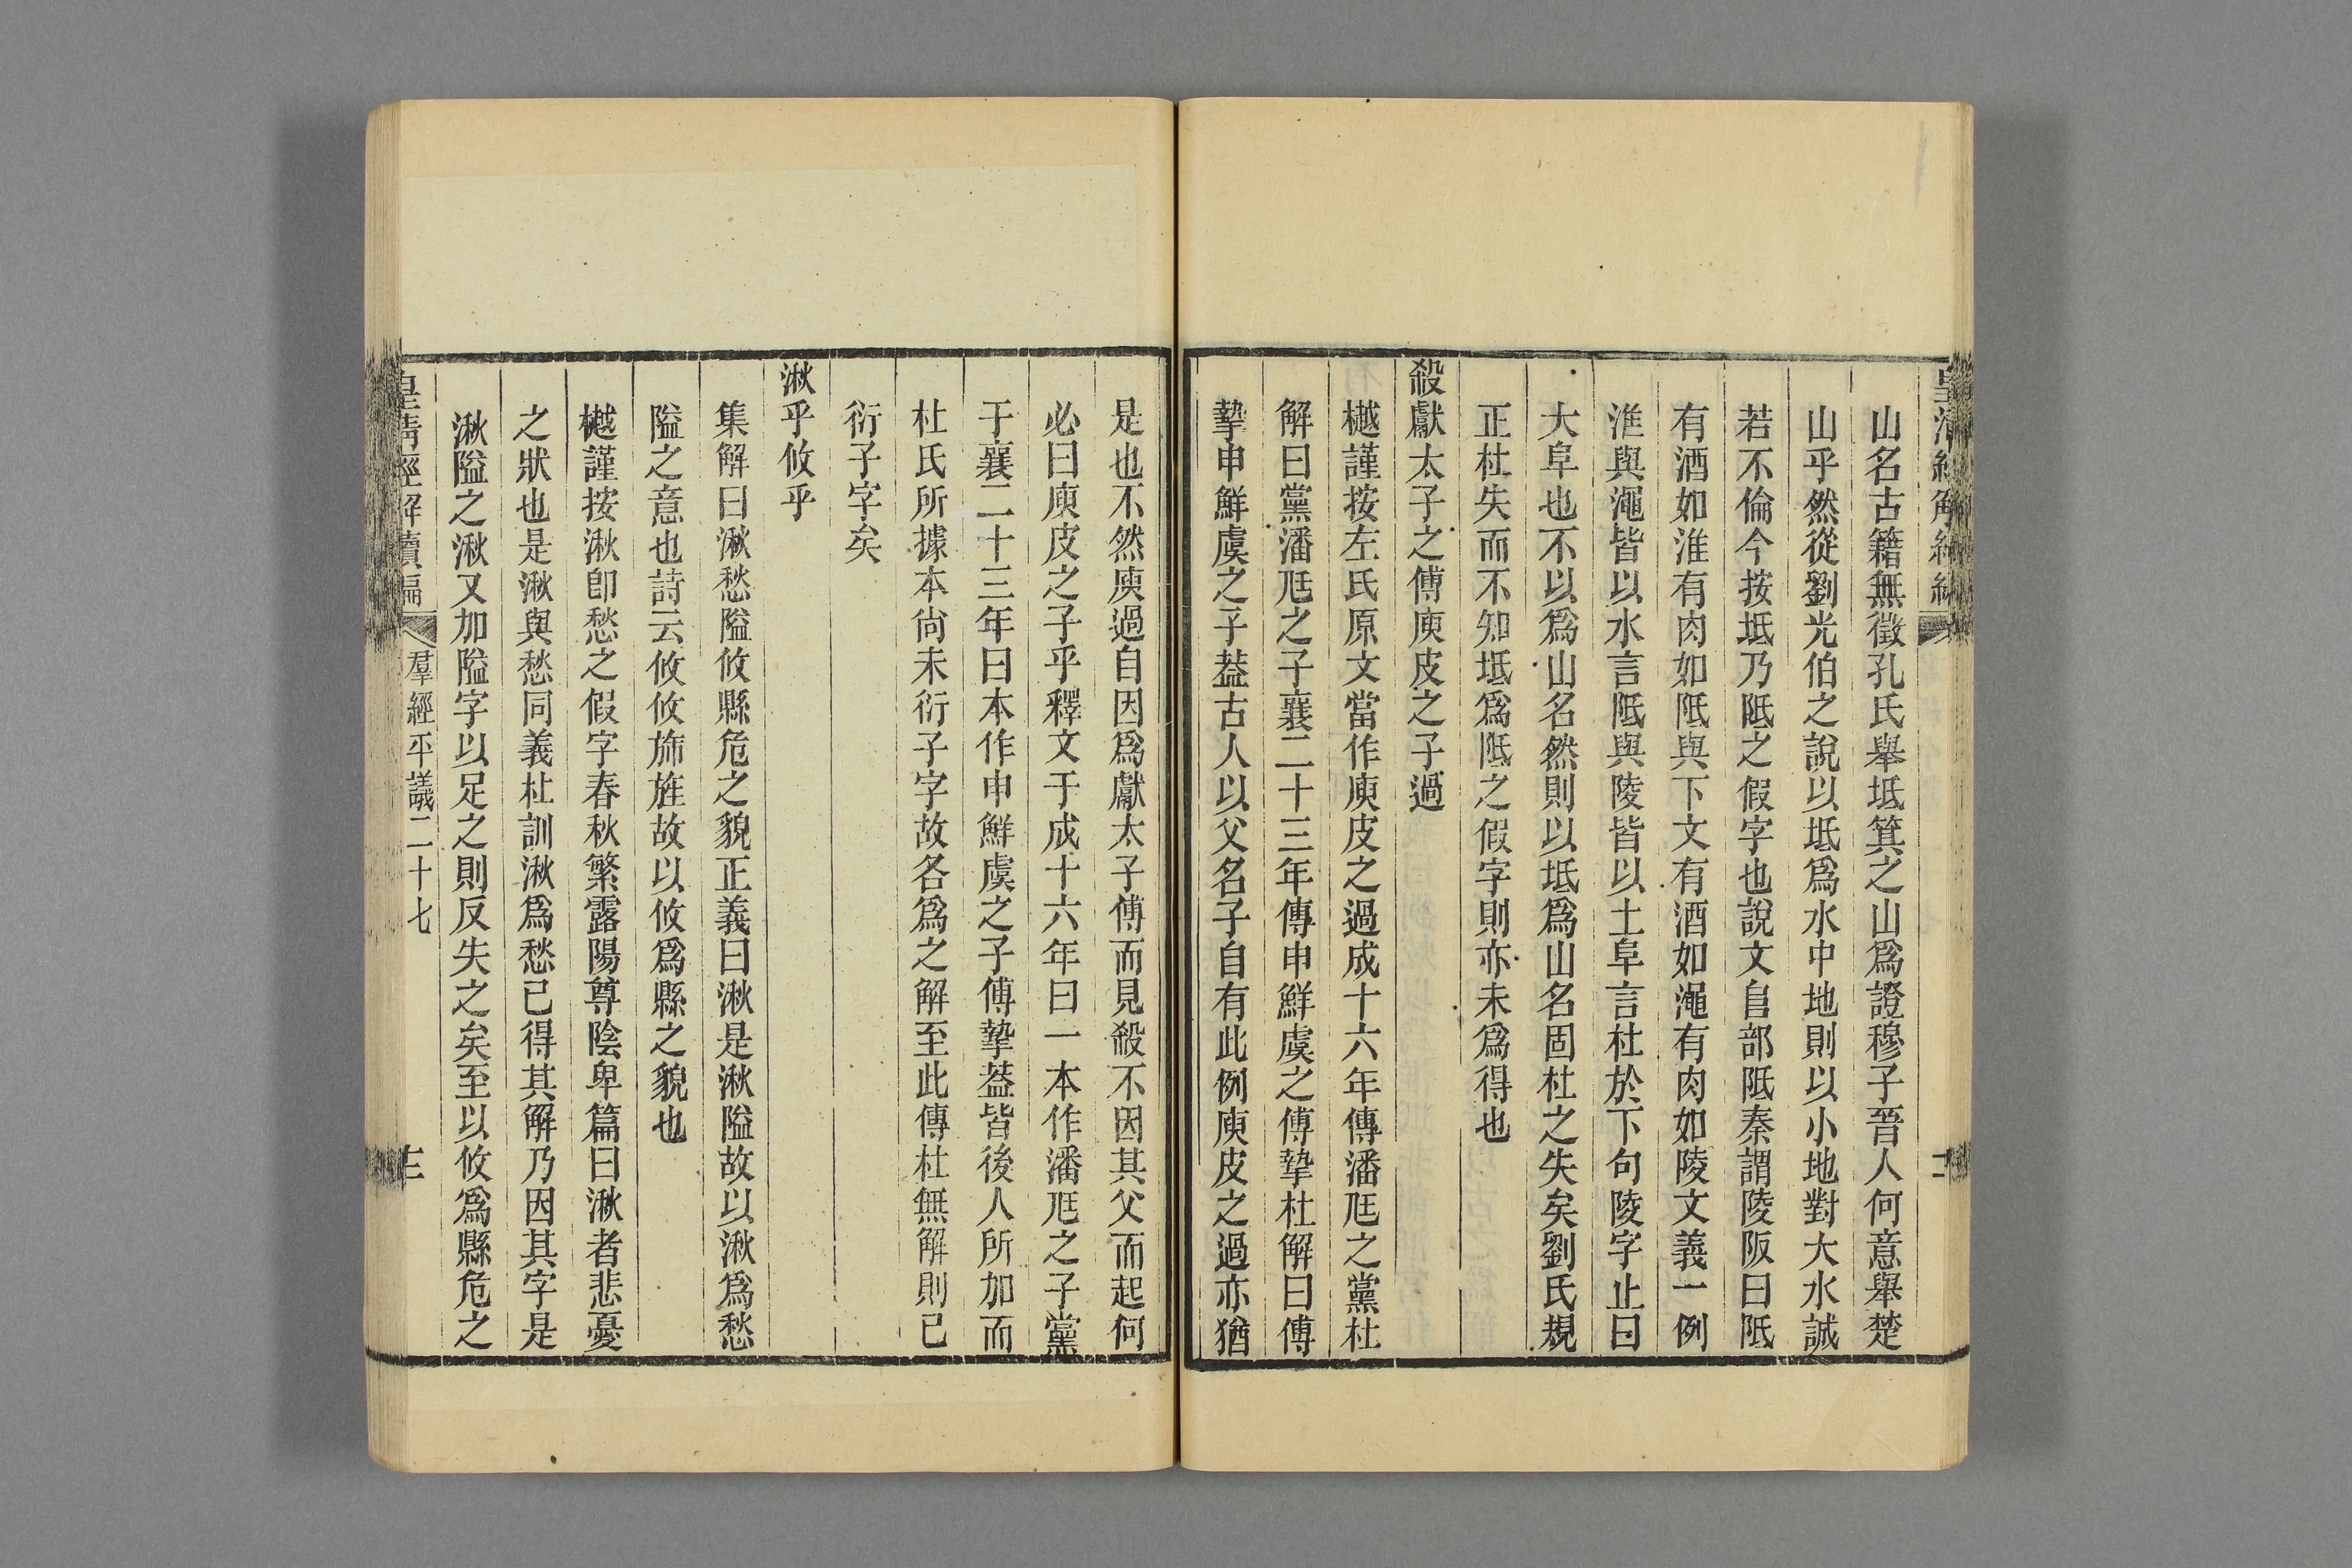 山名古籍無徵孔氏舉坻箕之山爲證穆子晉人何意舉楚
山乎然從劉光伯之說以坻爲水中地則以小地對大水誠
若不倫今按坻乃阺之假字也說文𨸏部阺秦謂陵阪曰阺
有酒如淮有肉如阺與下文有酒如澠有肉如陵文義一例
淮與澠皆以水言阺與陵皆以土阜言杜於下句陵字止曰
大阜也不以爲山名然則以坻爲山名固杜之失矣劉氏規
正杜失而不知坻爲阺之假字則亦未爲得也
殺獻太子之傅庾皮之子過
樾謹按左氏原文當作庾皮之過成十六年傳潘尫之黨杜
解曰黨潘尫之子襄二十三年傳申鮮虞之傅摯杜解曰傅
摯申鮮虞之子葢古人以父名子自有此例庾皮之過亦猶
是也不然庾過自因爲獻太子傅而見殺不因其父而起何
必曰庾皮之子乎釋文于成十六年曰一本作潘尫之子黨
于襄二十三年曰本作申鮮虞之子傅摯葢皆後人所加而
杜氏所據本尙未衍子字故各爲之解至此傳杜無解則已
衍子字矣
湫乎攸乎
集解曰湫愁隘攸縣危之貌正義曰湫是湫隘故以湫爲愁
隘之意也詩云攸攸旆旌故以攸爲縣之貌也
樾謹按湫卽愁之假字春秋繁露陽尊陰卑篇曰湫者悲憂
之狀也是湫與愁同義杜訓湫爲愁已得其解乃因其字是
湫隘之湫又加隘字以足之則反失之矣至以攸爲縣危之
皇清經解續編 羣經平議二十七